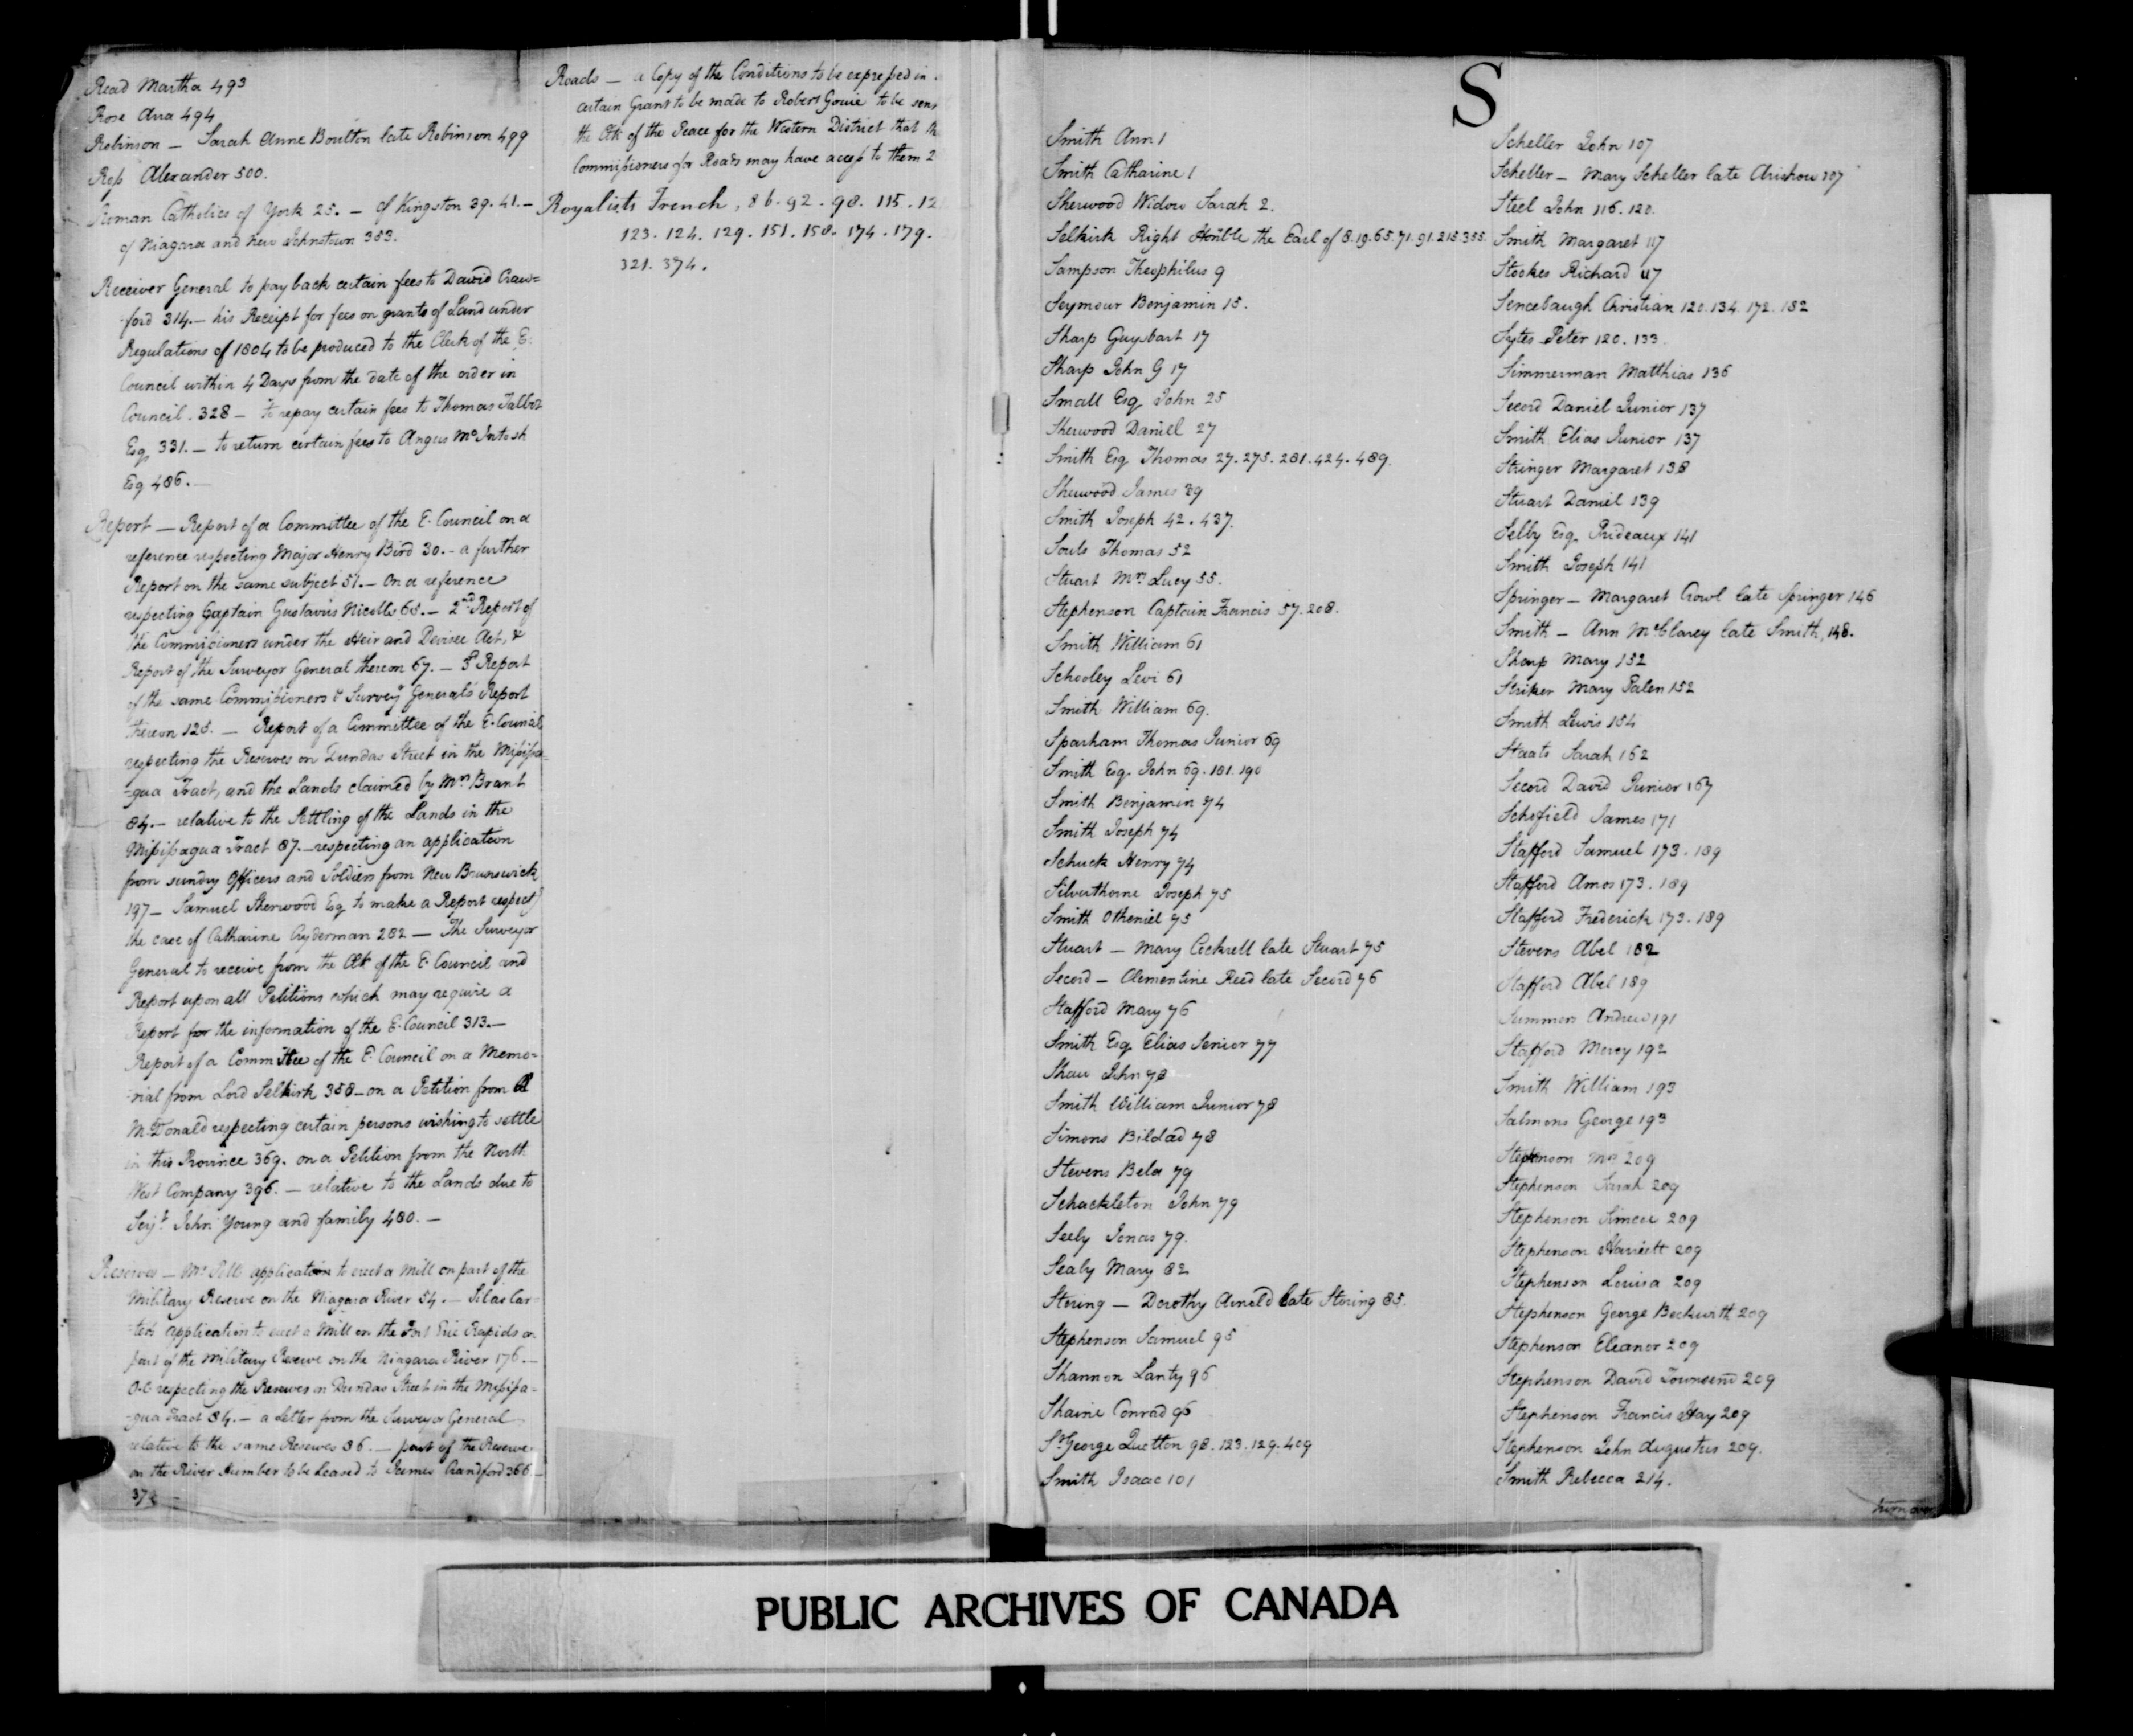 Read Martha 493
Rose Ana 494
Robinson — Sarah Anne Boulton late Robinson 499
Ross Alexander 500.
Roman Catholics of York 25. — of Kingston 39. 41. —
of Niagara and New Johnstown 353.
Receiver General to pay back certain fees to David Craw=
ford 314. — his Receipt for fees on grants of Land under
Regulations of 1804 to be produced to the Clerk of the E.
Council within 4 Days from the date of the order in
Council. 328 — to repay certain fees to Thomas Talbot
Esq. 331. — to return certain fees to Angus McIntosh
Esq 486. —
Report — Report of a Committee of the E. Council on a
reference respecting Major Henry Bird 30. — a further
Report on the same subject 51. — On a reference
respecting Captain Gustavus Nicolls 60. — 2nd Report of
the Commissioners under the Heir and Devisee Act, &
Report of the Surveyor General thereon 67. — 3d Report
of the same Commissioners & Survey General's Report
thereon 125. — Report of a Committee of the E. Council
respecting the Reserves on Dundas Street in the Mississa=
=gua Tract, and the Lands claimed by Mrs Brant
84. — relative to the Settling of the Lands in the
Mississagua Tract 87. — respecting an application
from sundry Officers and Soldiers from New Brunswick
197 — Samuel Sherwood Esq to make a Report respect
the case of Catharine Cryderman 282 — The Surveyor
General to receive from the Clk of the E. Council and
Report upon all Petitions which may require a
Report for the information of the E. Council 313. —
Report of a Committee of the E. Council on a Memo=
=rial from Lord Selkirk 358 — on a Petition from Al
McDonald respecting certain persons wishing to settle
in this Province 369. on a Petition from the North
West Company 396. — relative to the Lands due to
Serjt John Young and family 480. —
Reserves — application to erect a Mill on part of the
Military Reserve on the Niagara River 54. — Silas Car
=ter's application to erect a Mill on the Fort Erie Rapids on
part of the Military Reserve on the Niagara River 176. —
O.C respecting the Reserves on Dundas Street in the Mississa=
=gua Tract 84. — a Letter from the Surveyor General
relative to the same Reserves 86. — part of the Reserve
on the River Humber to be Leased to James Crandford 366 —
Roads — a Copy of the Conditions to be expressed in
certain Grant to be made to Robert Gouie to be sent
the Clk of the Peace for the Western District that the
Commissioners for Roads may have access to them 2
Royalists French, 86. 92. 98. 115. 12
123. 124. 129. 151. 158. 174. 179.
321. 374.
S
Smith Ann 1
Smith Catharine 1
Sherwood Widow Sarah 2.
Selkirk Right Honble the Earl of 8. 19. 65. 71. 91. 215. 355.
Sampson Theophilus 9
Seymour Benjamin 15.
Sharp Guysbart 17
Sharp John G 17
Small Esq John 25
Sherwood Daniel 27
Smith Esq Thomas 27. 275. 281. 424. 489.
Sherwood James 39
Smith Joseph 42. 437.
Souls Thomas 52
Stuart Mrs Lucy 55.
Stephenson Captain Francis 57. 208.
Smith William 61
Schooley Levi 61
Smith William 69.
Sparham Thomas Junior 69
Smith Esq. John 69. 181. 190
Smith Benjamin 74
Smith Joseph 74
Schuck Henry 74
Silverthorne Joseph 75
Smith Otheniel 75
Stuart — Mary Cockrell late Stuart 75
Secord — Clementine Reed late Secord 76
Stafford Mary 76
Smith Esq Elias Senior 77
Shaw John 78
Smith William Junior 78
Simons Bildad 78
Stevens Bela 79
Schackleton John 79
Seely Jonas 79.
Sealy Mary 82
Stering — Dorothy Arnold late Stering 85.
Stephenson Samuel 95
Shannon Lanty 96
Shaine Conrad 96
St George Quetton 98. 123. 129. 409
Smith Isaac 101
Scheller John 107
Scheller — Mary Scheller late 107
Steel John 116. 120.
Smith Margaret 117
Stookes Richard 117
Sencebaugh Christian 120. 134. 172. 182
Sytes Peter 120. 133.
Simmerman Matthias 136
Secord Daniel Junior 137
Smith Elias Junior 137
Stringer Margaret 138
Stuart Daniel 139
Selby Esq Prideaux 141
Smith Joseph 141
Springer — Margaret Crowl late Springer 146
Smith — Ann McClarey late Smith, 148.
Sharp Mary 152
Striker Mary Palen 152
Smith Lewis 154
Staats Sarah 162
Secord David Junior 167
Schofield James 171
Stafford Samuel 173. 189
Stafford Amos 173. 189
Stafford Frederick 173. 189
Stevens Abel 182
Stafford Abel 189
Summers Andrew 191
Stafford Mercy 192
Smith William 193
Salmons George 193
Stephenson Mrs 209
Stephenson Sarah 209
Stephenson Simcoe 209
Stephenson Harriett 209
Stephenson Louisa 209
Stephenson George Beckwith 209
Stephenson Eleanor 209
Stephenson David Townsend 209
Stephenson Francis Hay 209
Stephenson John Augustus 209.
Smith Rebecca 214.
turn over
PUBLIC ARCHIVES OF CANADA